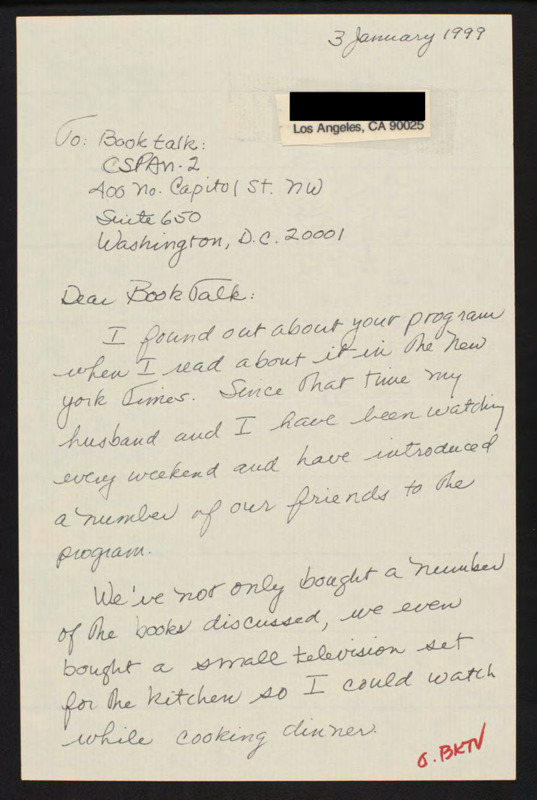 3 January 1999
Los Angeles, CA 90025
To: Book talk:
CSPAN-2
400 No. Capitol St. NW
Suite 650
Washington, D.C. 20001
Dear Book Talk:
I found out about your program
when I read about it in the New
York Times. Since that time my
husband and I have been watching
every weekend and have introduced
a number of our friends to the
program.
We've not only bought a number
of the books discussed, we even
bought a small television set
for the kitchen so I could watch
while cooking dinner.
BKTV